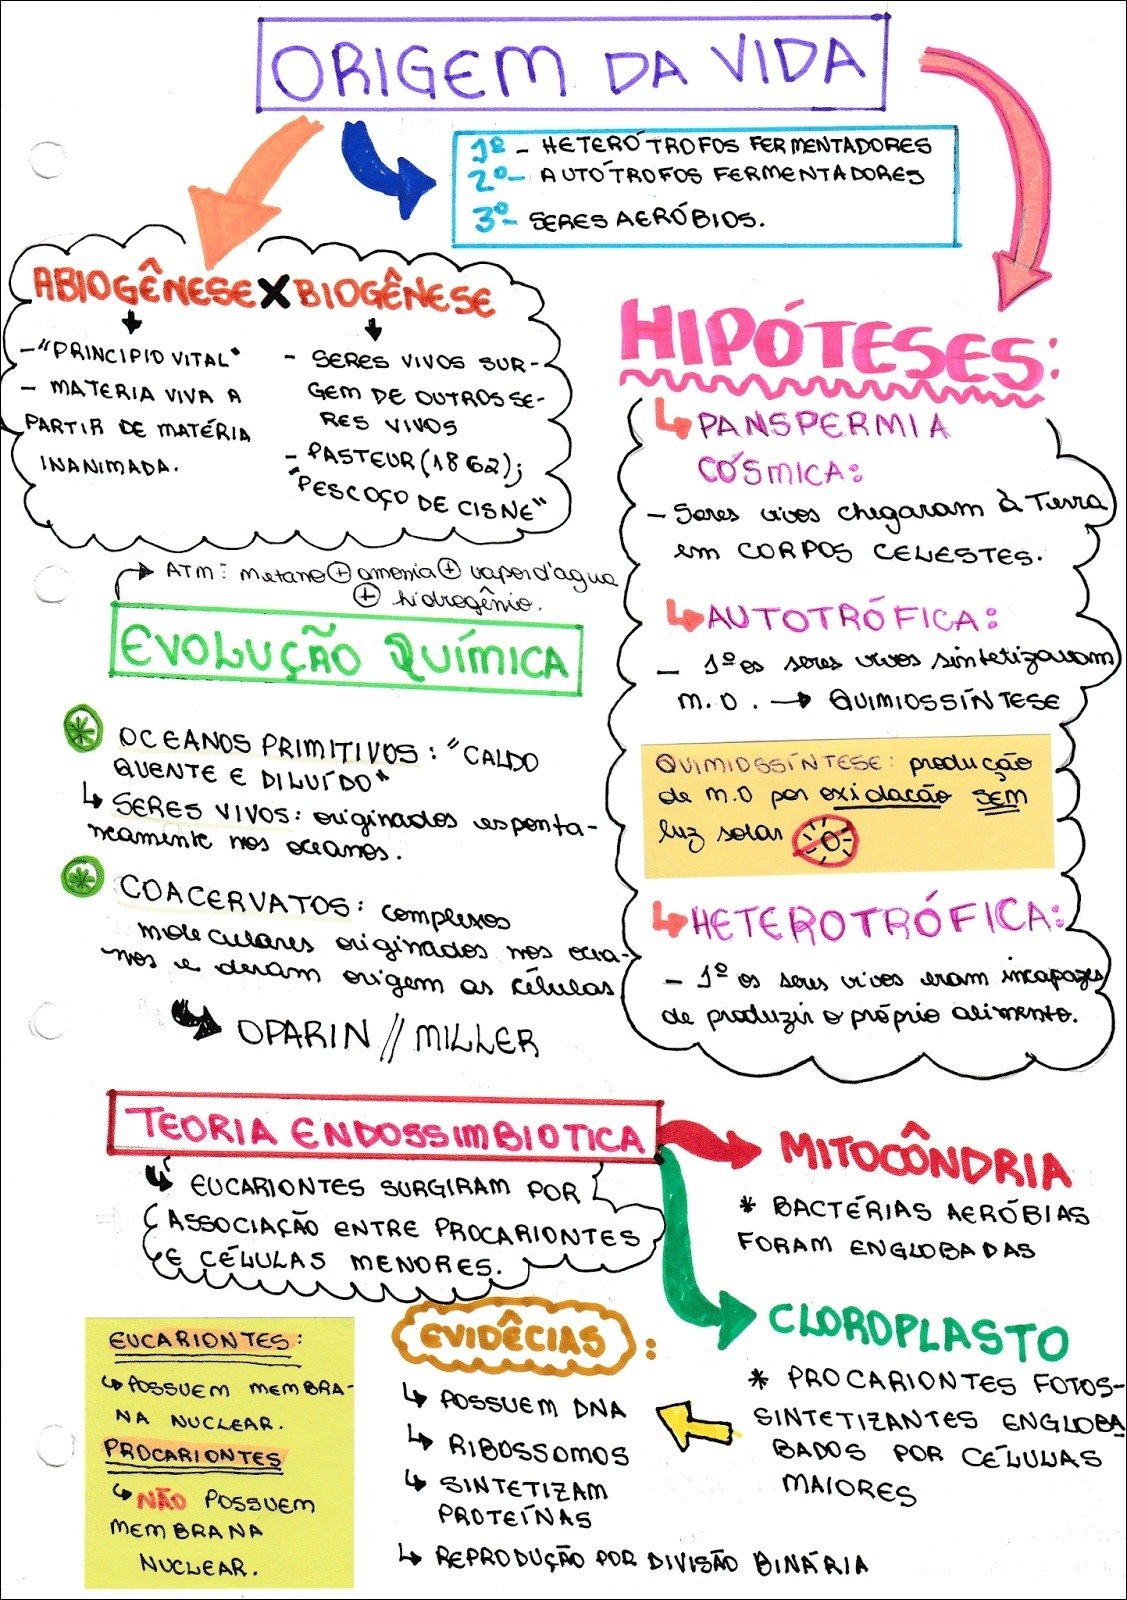 ORIGEM DA VIDA
1º - HETERÓTROFOS FERMENTADORES
2º - AUTÓTROFOS FERMENTADORES
3º - SERES AERÓBIOS.
ABIOGÊNESE X BIOGÊNESE
- "PRINCIPIO VITAL"
- MATERIA VIVA A
PARTIR DE MATÉRIA
INANIMADA.
- SERES VIVOS SUR-
GEM DE OUTROS SE-
RES VIVOS
- PASTEUR (1862);
"PESCOÇO DE CISNE"
HIPÓTESES:
PANSPERMIA
CÓSMICA:
- Seres vivos chegaram à Terra
em CORPOS CELESTES.
AUTOTRÓFICA:
- 1º os seres vivos sintetizavam
M.O. → QUIMIOSSÍNTESE
QUIMIOSSÍNTESE: produção
de M.O por oxidação SEM
luz solar
HETEROTRÓFICA:
- 1º os seres vivos eram incapazes
de produzir o próprio alimento.
ATM: metano + amonia + vapor d'agua
+ hidrogênio.
EVOLUÇÃO QUÍMICA
OCEANOS PRIMITIVOS: "CALDO
QUENTE E DILUÍDO"
SERES VIVOS: originados esponta-
neamente nos oceanos.
COACERVATOS: complexos
moleculares originados nos ocea-
nos e deram origem as células
OPARIN // MILLER
TEORIA ENDOSSIMBIOTICA
EUCARIONTES SURGIRAM POR
ASSOCIAÇÃO ENTRE PROCARIONTES
E CÉLULAS MENORES.
MITOCÔNDRIA
* BACTÉRIAS AERÓBIAS
FORAM ENGLOBADAS
CLOROPLASTO
* PROCARIONTES FOTOS-
SINTETIZANTES ENGLOBA
BADOS POR CÉLULAS
MAIORES
EVIDÊCIAS:
POSSUEM DNA
RIBOSSOMOS
SINTETIZAM
PROTEÍNAS
REPRODUÇÃO POR DIVISÃO BINÁRIA
EUCARIONTES:
POSSUEM MEMBRA-
NA NUCLEAR.
PROCARIONTES
NÃO POSSUEM
MEMBRANA
NUCLEAR.